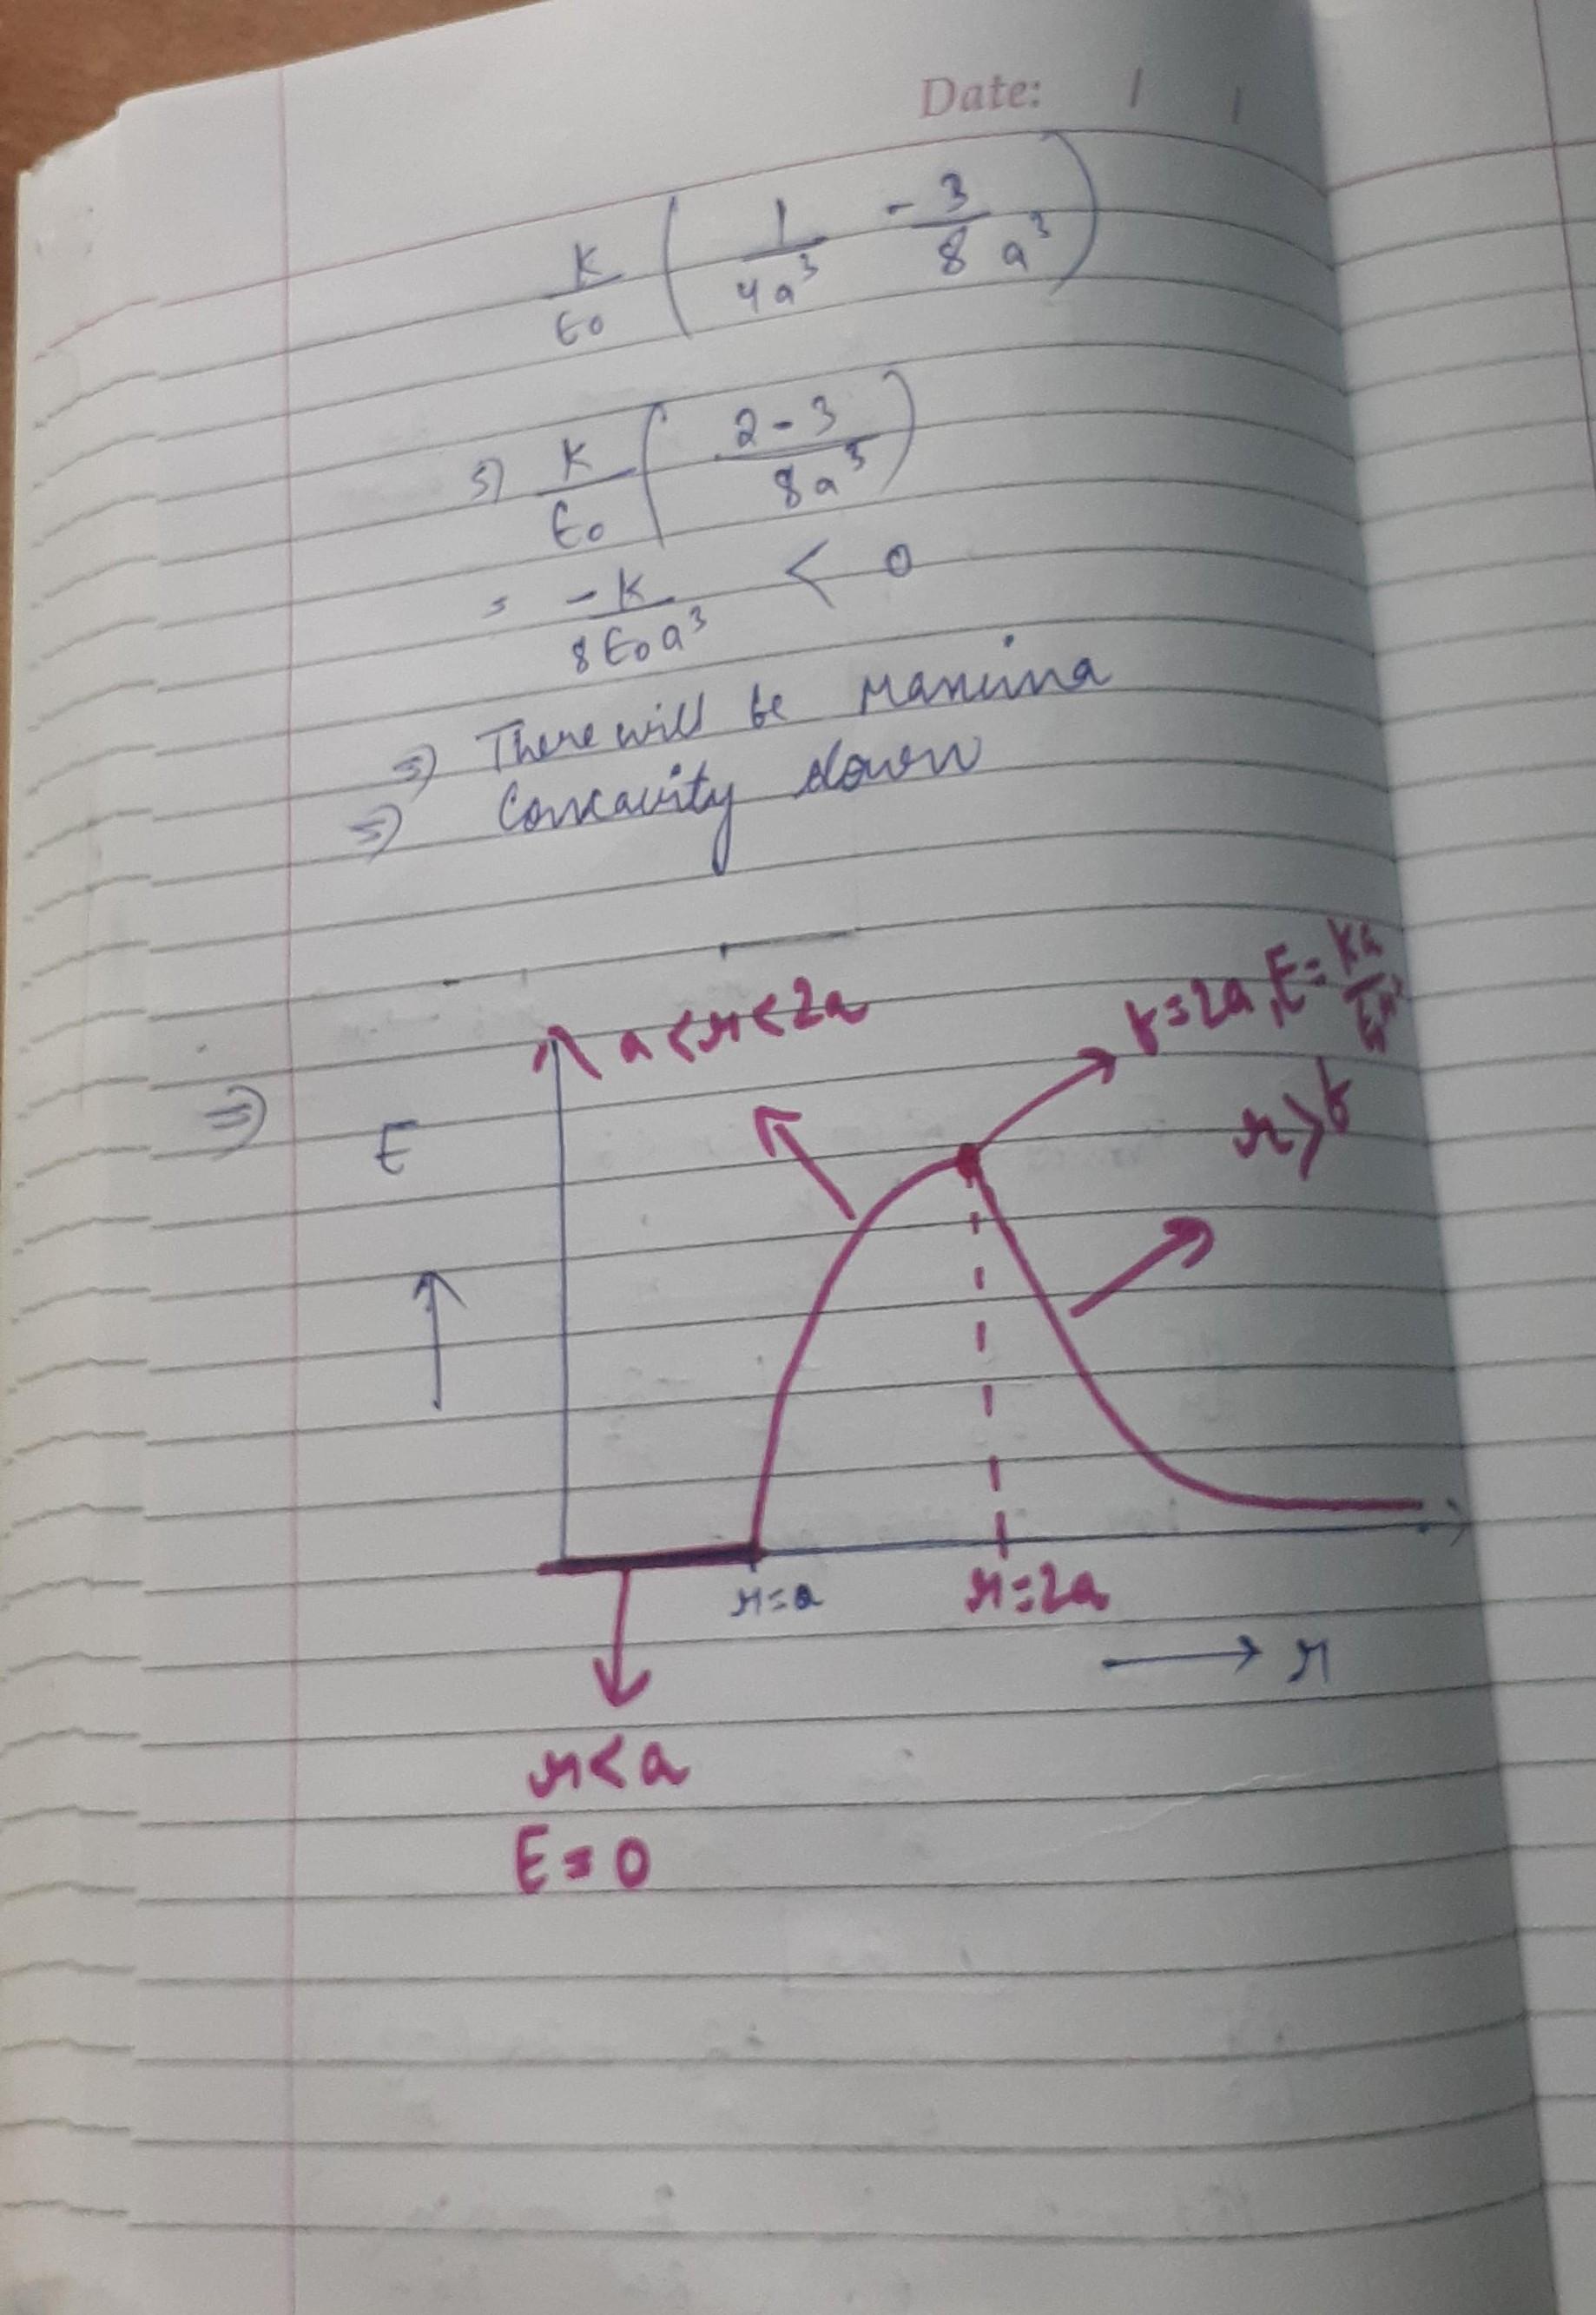 Date: / /
K/ε₀ ( 1/4a³ - 3/8a³ )
⇒ K/ε₀ ( 2-3/8a³ )
= -K/8ε₀a³ < 0
⇒ There will be Maxima
⇒ Concavity down
a<r<2a
b=2a, E=
r>b
⇒ E
r=a
r=2a
→ r
r<a
E=0